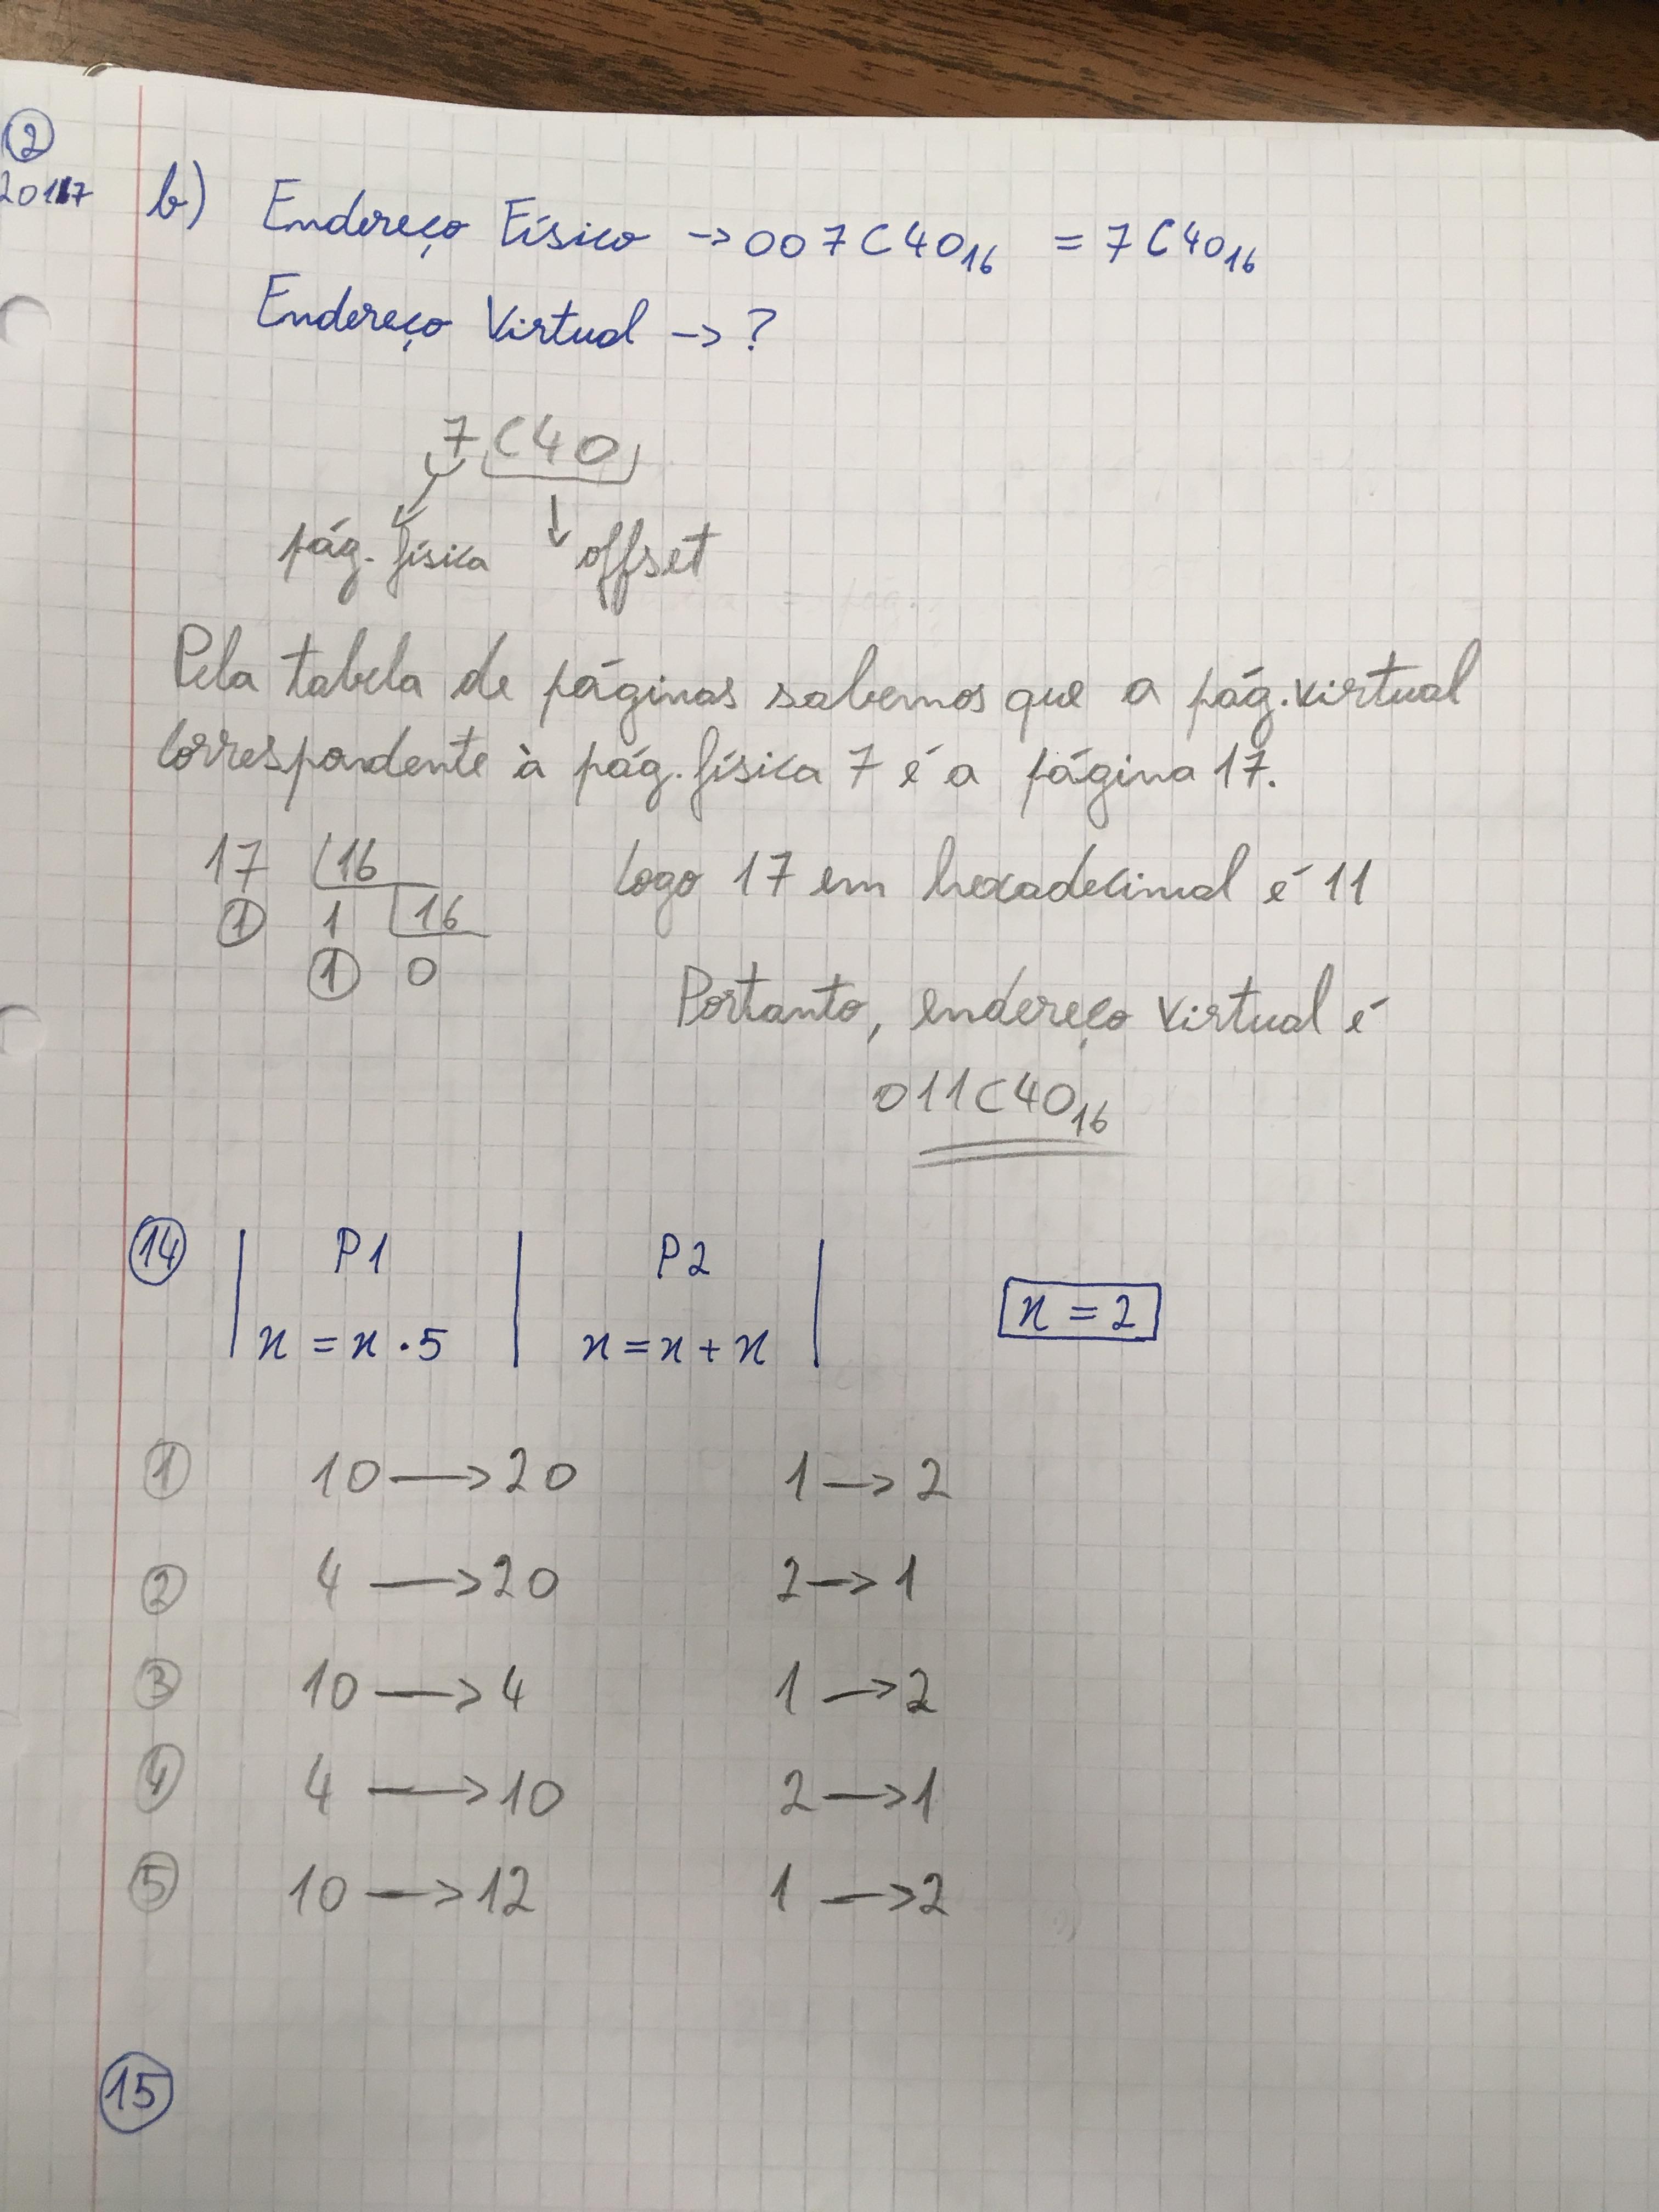 ②
2017
b) Endereço Físico -> 007C40₁₆ = 7C40₁₆
Endereço Virtual -> ?
7C40
pág. física offset
Pela tabela de páginas sabemos que a pág. virtual
correspondente à pág. física 7 é a página 17.
17 16 Logo 17 em hexadecimal é 11
① 1 16
① 0
Portanto, endereço virtual é
011C40₁₆
⑭ P1 P2
x = 2
x = x . 5 x = x + x
① 10 -> 20 1 -> 2
② 4 -> 20 2 -> 1
③ 10 -> 4 1 -> 2
④ 4 -> 10 2 -> 1
⑤ 10 -> 12 1 -> 2
⑮